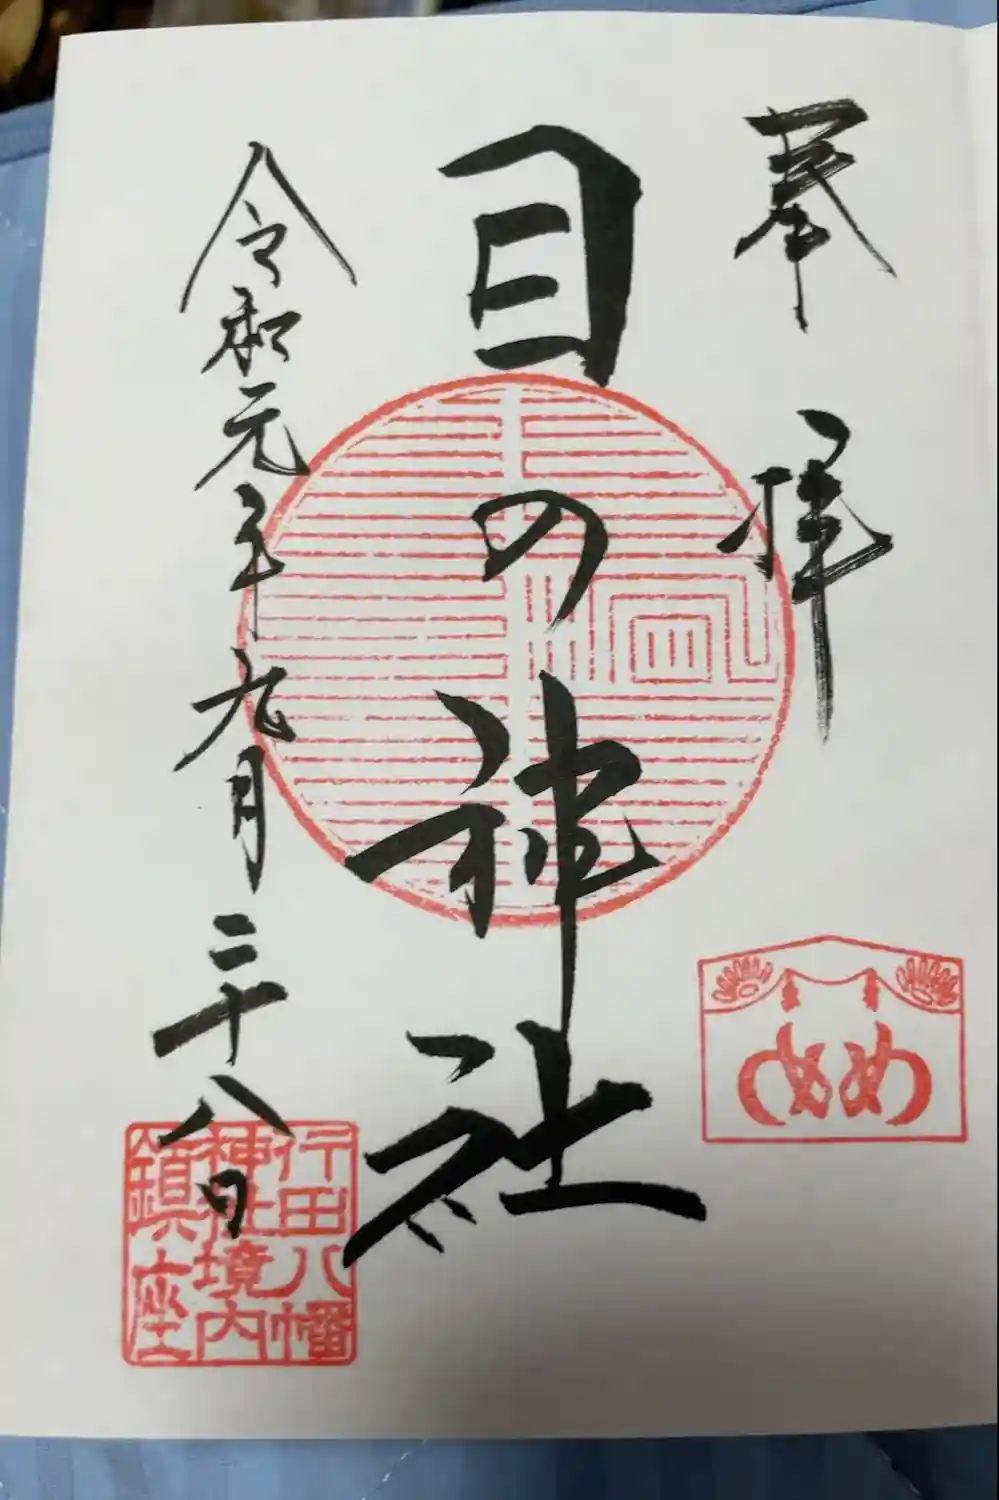 奉拝
目の神社
めめ
令和元年九月二十八日
行田八幡
神社境内
鎮座